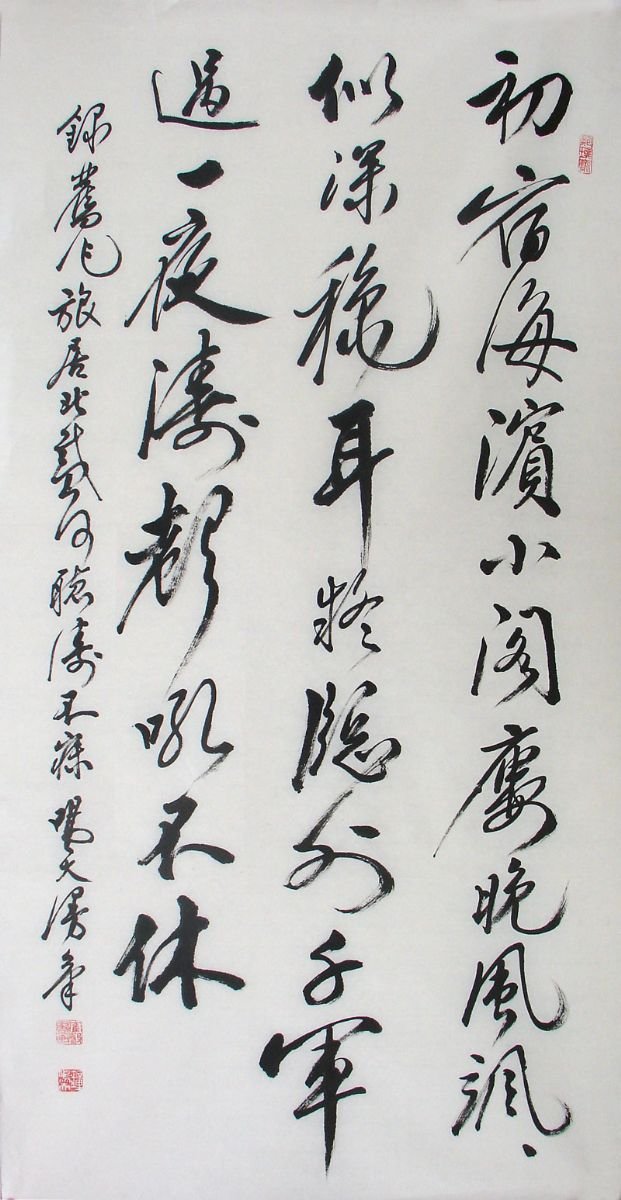 初宿海濱小閣廔晚風颯、
似深秋耳隱約千軍
過一夜濤聲吼不休
錄舊作旅居北戴河聽濤不寐大漫筆